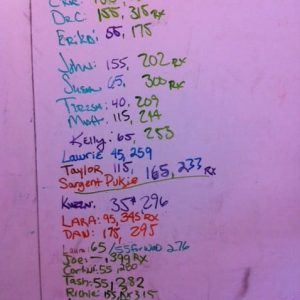 Dr.C: 155, 315 RX
Erika: 55, 175
John: 155, 202 RX
Susan 65, 300 RX
Teresa: 40, 209
Matt: 115, 244
Kelly: 65, 253
Lawrie 45, 259
Taylor 115, 165, 233 RX
Sargent Pukie
Karen: 35# 296
LARA: 95, 345 RX
DAN: 175, 295
Laura: 65 / 55 for WOD 276
Joe: —, 399 RX
55, 280
Tash: 55, 282
Richie: 155, RX 315